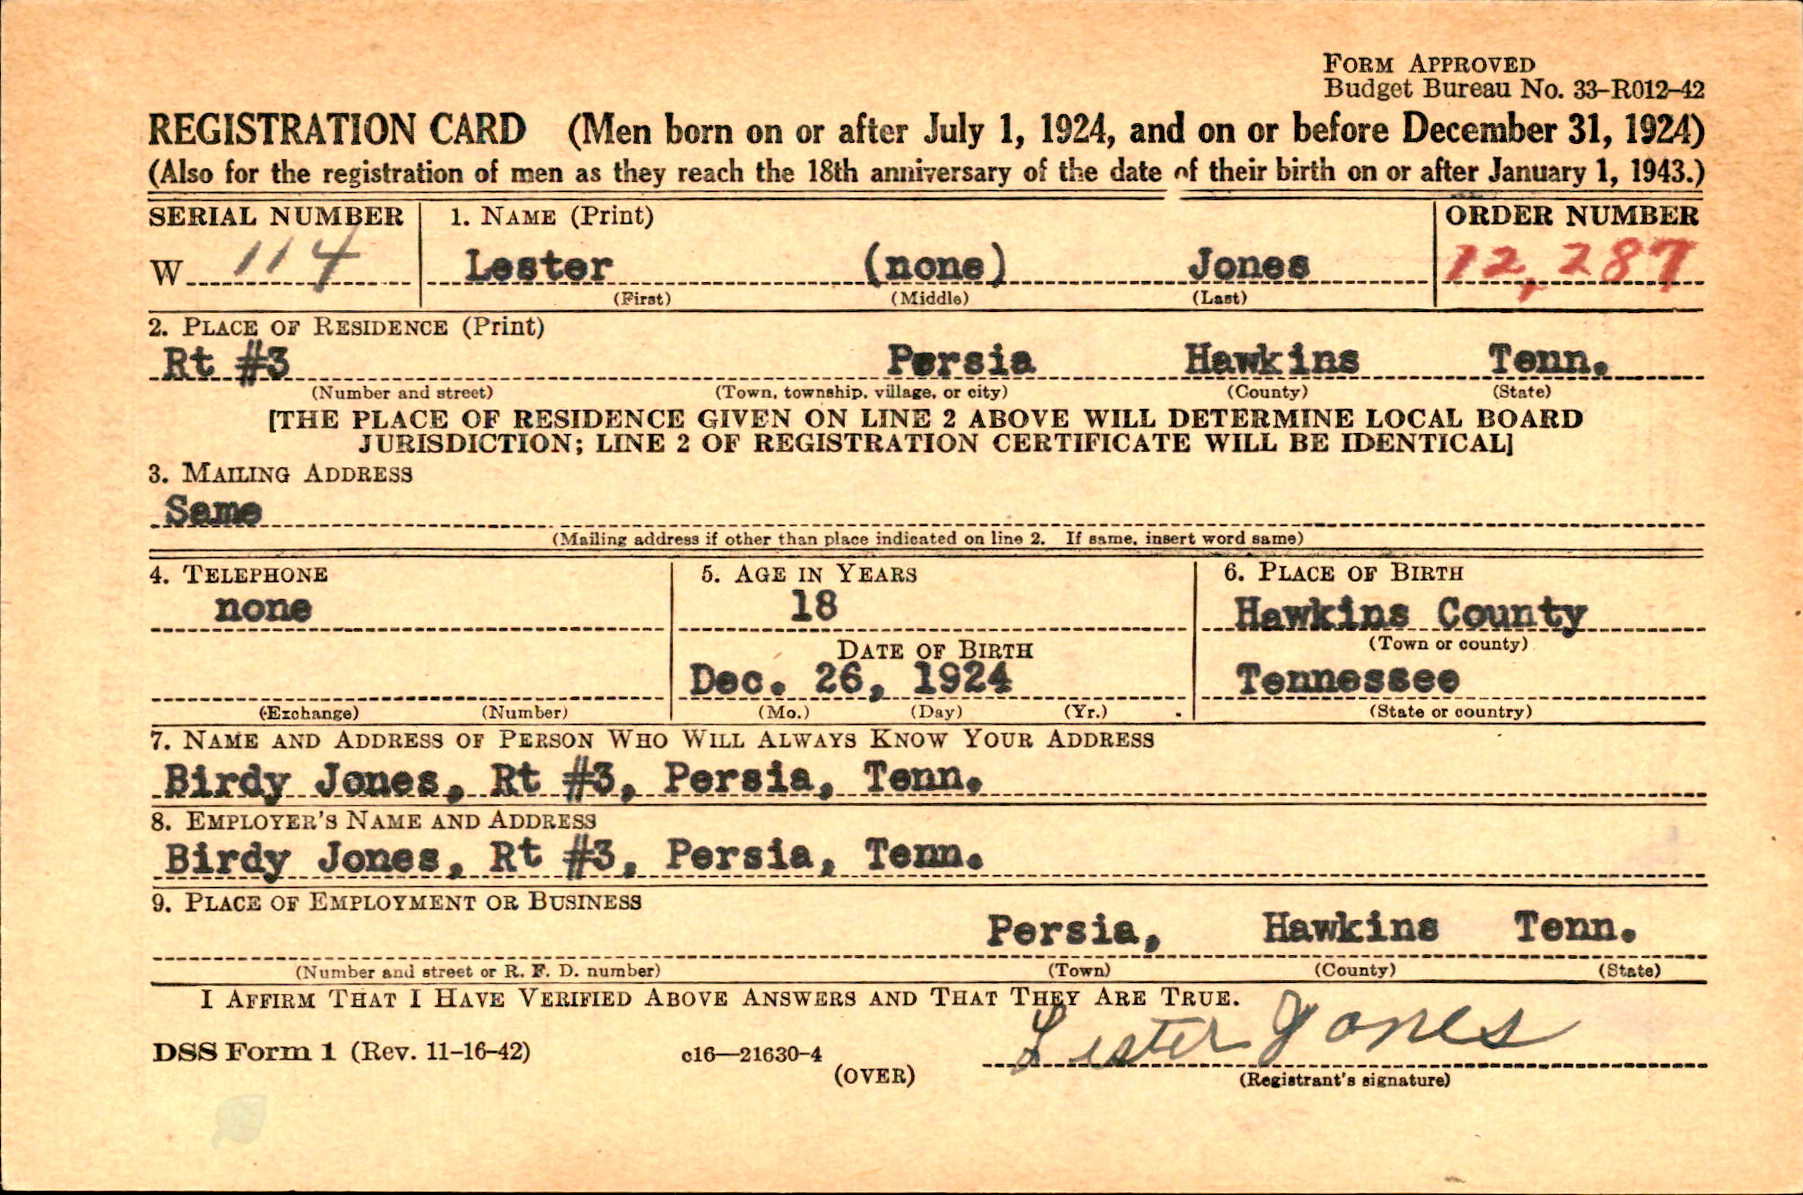 FORM APPROVED
Budget Bureau No. 33-R012-42
REGISTRATION CARD (Men born on or after July 1, 1924, and on or before December 31, 1924)
(Also for the registration of men as they reach the 18th anniversary of the date of their birth on or after January 1, 1943.)
SERIAL NUMBER 1. NAME (Print) ORDER NUMBER
W 114 Lester (none) Jones 12,287
(First) (Middle) (Last)
2. PLACE OF RESIDENCE (Print)
Rt #3 Persia Hawkins Tenn.
(Number and street) (Town, township, village, or city) (County) (State)
[THE PLACE OF RESIDENCE GIVEN ON LINE 2 ABOVE WILL DETERMINE LOCAL BOARD
JURISDICTION; LINE 2 OF REGISTRATION CERTIFICATE WILL BE IDENTICAL]
3. MAILING ADDRESS
Same
(Mailing address if other than place indicated on line 2. If same, insert word same)
4. TELEPHONE 5. AGE IN YEARS 6. PLACE OF BIRTH
none 18 Hawkins County
DATE OF BIRTH (Town or county)
Dec. 26, 1924 Tennessee
(Exchange) (Number) (Mo.) (Day) (Yr.) (State or country)
7. NAME AND ADDRESS OF PERSON WHO WILL ALWAYS KNOW YOUR ADDRESS
Birdy Jones, Rt #3, Persia, Tenn.
8. EMPLOYER'S NAME AND ADDRESS
Birdy Jones, Rt #3, Persia, Tenn.
9. PLACE OF EMPLOYMENT OR BUSINESS
Persia, Hawkins Tenn.
(Number and street or R. F. D. number) (Town) (County) (State)
I AFFIRM THAT I HAVE VERIFIED ABOVE ANSWERS AND THAT THEY ARE TRUE.
Lester Jones
DSS Form 1 (Rev. 11-16-42) c16—21630-4
(OVER) (Registrant's signature)